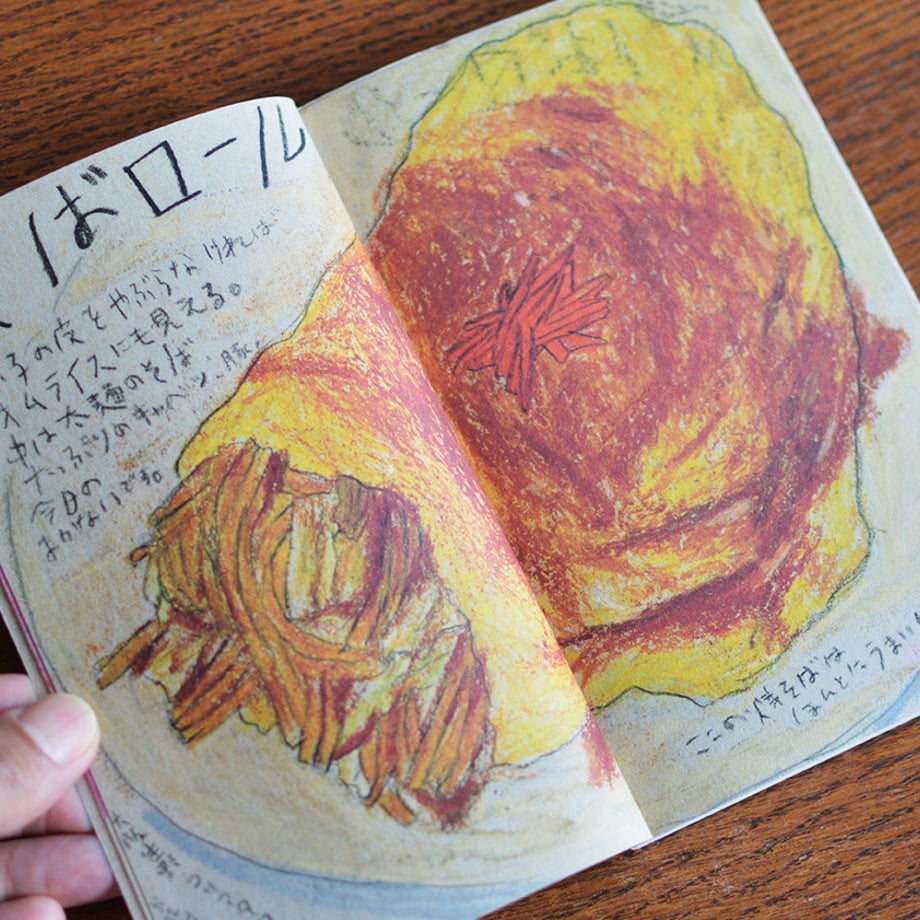 ばロール
子の皮をやぶらなければ
オムライスにも見える。
中は太麺のそば、豚
たっぷりのキャベツ
今日の
まかないです。
ここの焼そばは
ほんとにうまい